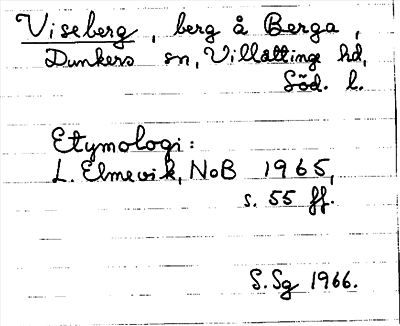 Viseberg, berg å Berga,
Dunkers sn, Villåttinge hd,
Söd. l.
Etymologi:
L. Elmevik, NoB 1965,
s. 55 ff.
S. Sg 1966.